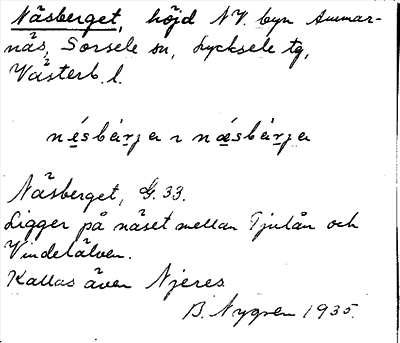 Näsberget, höjd NV. byn Ammar-
näs, Sorsele sn, Lycksele tg,
Västerb. l.
nésbàrja ~ næ̀sbàrja
Näsberget, G. 33.
Ligger på näset mellan Tjulån och
Vindelälven.
Kallas även Njeres
B. Nygren 1935.